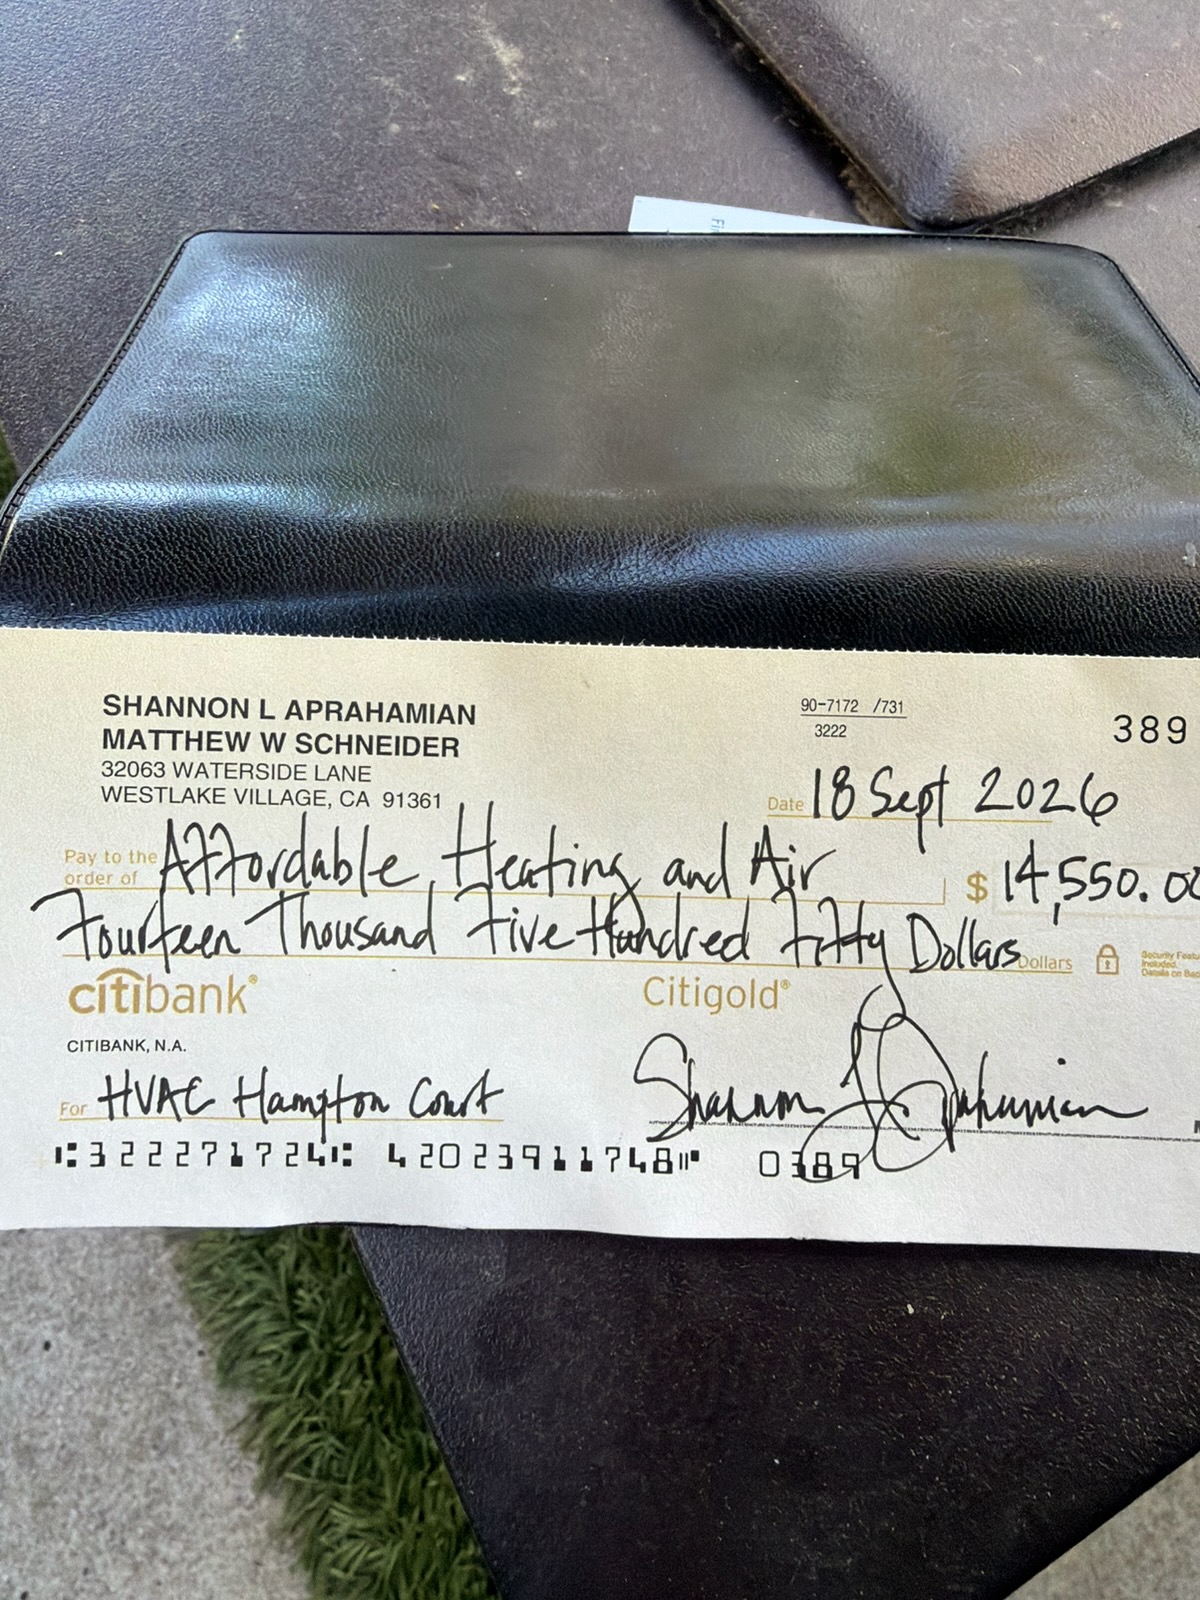 Fi
SHANNON L APRAHAMIAN
MATTHEW W SCHNEIDER
32063 WATERSIDE LANE
WESTLAKE VILLAGE, CA 91361
90-7172 /731
3222
389
Date 18 Sept 2026
Pay to the
order of Affordable Heating and Air $ 14,550.00
Fourteen Thousand Five Hundred Fifty Dollars Dollars
Security Featu
Included.
Details on Bac
citibank® Citigold®
CITIBANK, N.A.
For HVAC Hampton Court Shannon L Aprahamian
⑆322271724⑆ 42023911748⑈ 0389